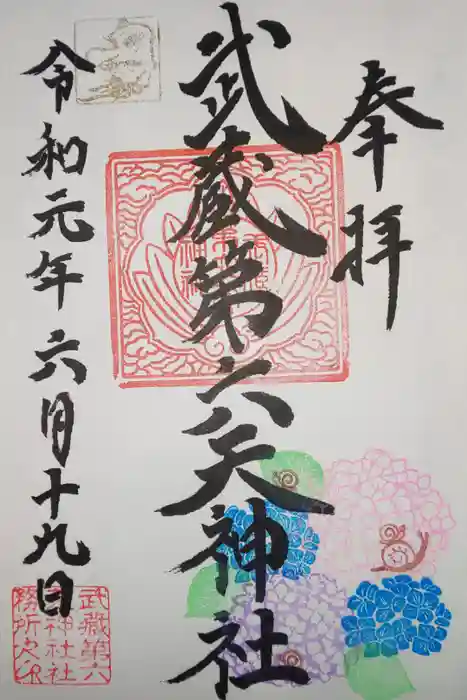 奉拝
武蔵第六天神社
令和元年六月十九日
武蔵第六
天神社社
務所之印